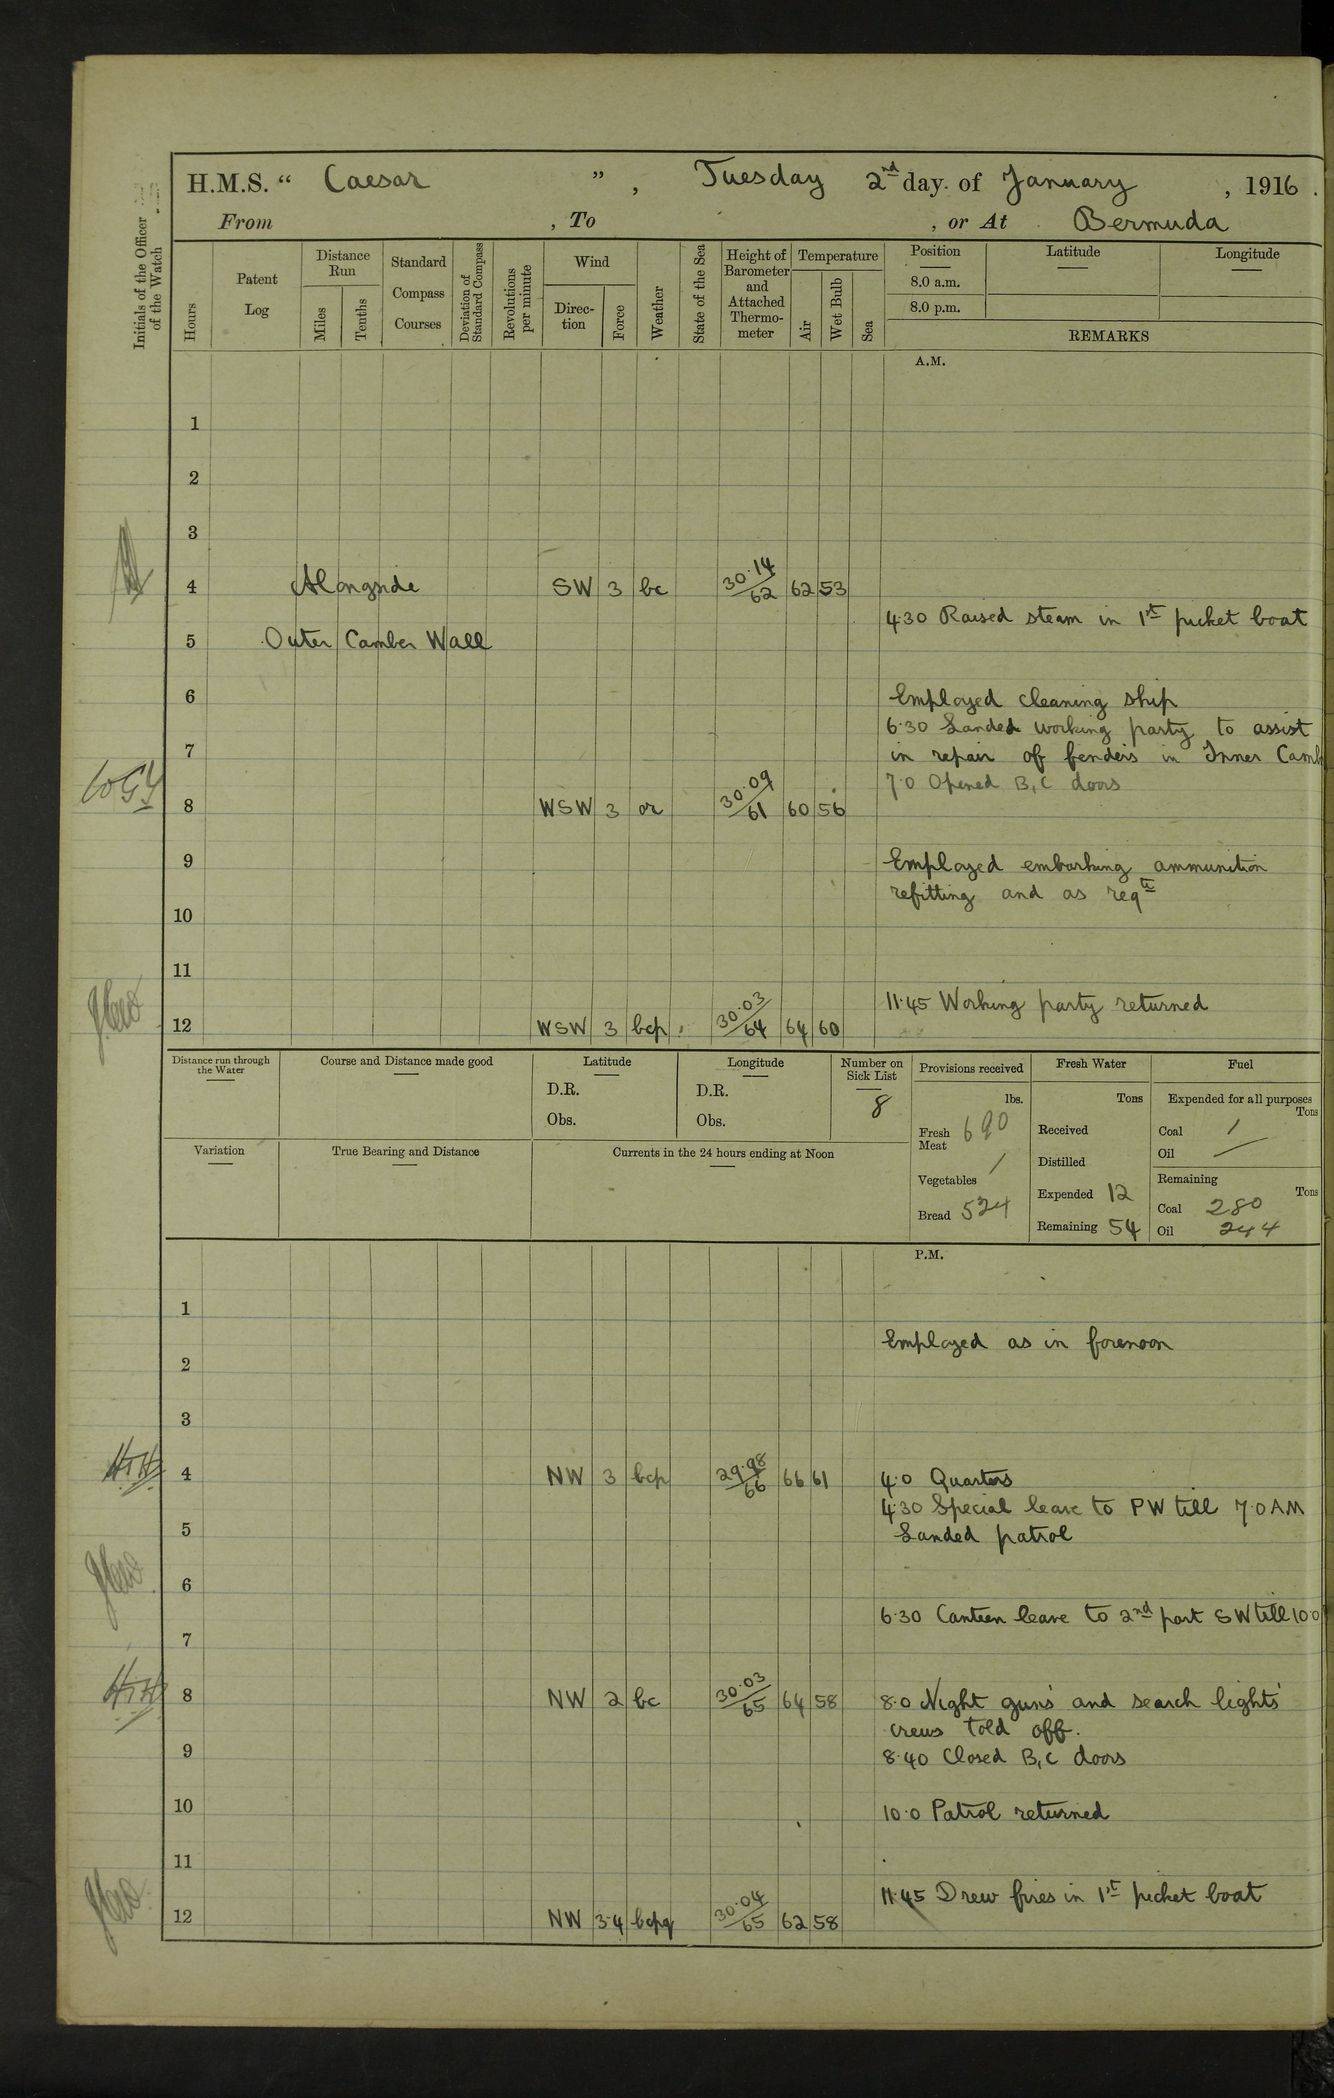 H.M.S. “ Caesar ” , Tuesday 2nd day of January , 1916 .
From , To , or At Bermuda
Initials of the Officer of the Watch
Hours
Patent Log
Distance Run
Miles
Tenths
Standard Compass Courses
Deviation of Standard Compass
Revolutions per minute
Wind
Direc-tion
Force
Weather
State of the Sea
Height of Barometer and Attached Thermo-meter
Temperature
Air
Wet Bulb
Sea
Position Latitude Longitude
8.0 a.m.
8.0 p.m.
REMARKS
A.M.
1
2
3
4 Alongside SW 3 bc 30.14/62 62 53
4.30 Raised steam in 1st picket boat
5 Outer Camber Wall
6 Employed cleaning ship
6.30 Landed working party to assist
7 in repair of fenders in Inner Camb
7.0 Opened B, C doors
8 WSW 3 or 30.09/61 60 56
9 Employed embarking ammunition
refitting and as reqte
10
11
11.45 Working party returned
12 WSW 3 bcp 30.03/64 64 60
Distance run through the Water
Course and Distance made good
Latitude
D.R.
Obs.
Longitude
D.R.
Obs.
Number on Sick List
8
Variation
True Bearing and Distance
Currents in the 24 hours ending at Noon
Provisions received
lbs.
Fresh Meat 690
Vegetables /
Bread 524
Fresh Water
Tons
Received
Distilled
Expended 12
Remaining 54
Fuel
Expended for all purposes
Tons
Coal 1
Oil —
Remaining
Tons
Coal 280
Oil 244
P.M.
1
Employed as in forenoon
2
3
4 NW 3 bcp 29.98/66 66 61 4.0 Quarters
4.30 Special leave to PW till 7.0 AM
5 Landed patrol
6
6.30 Canteen leave to 2nd part SW till 10.0
7
8 NW 2 bc 30.03/65 64 58 8.0 Night guns' and search lights'
crews told off.
9 8.40 Closed B, C doors
10 10.0 Patrol returned
11
11.45 Drew fires in 1st picket boat
12 NW 3-4 bcpq 30.04/65 62 58